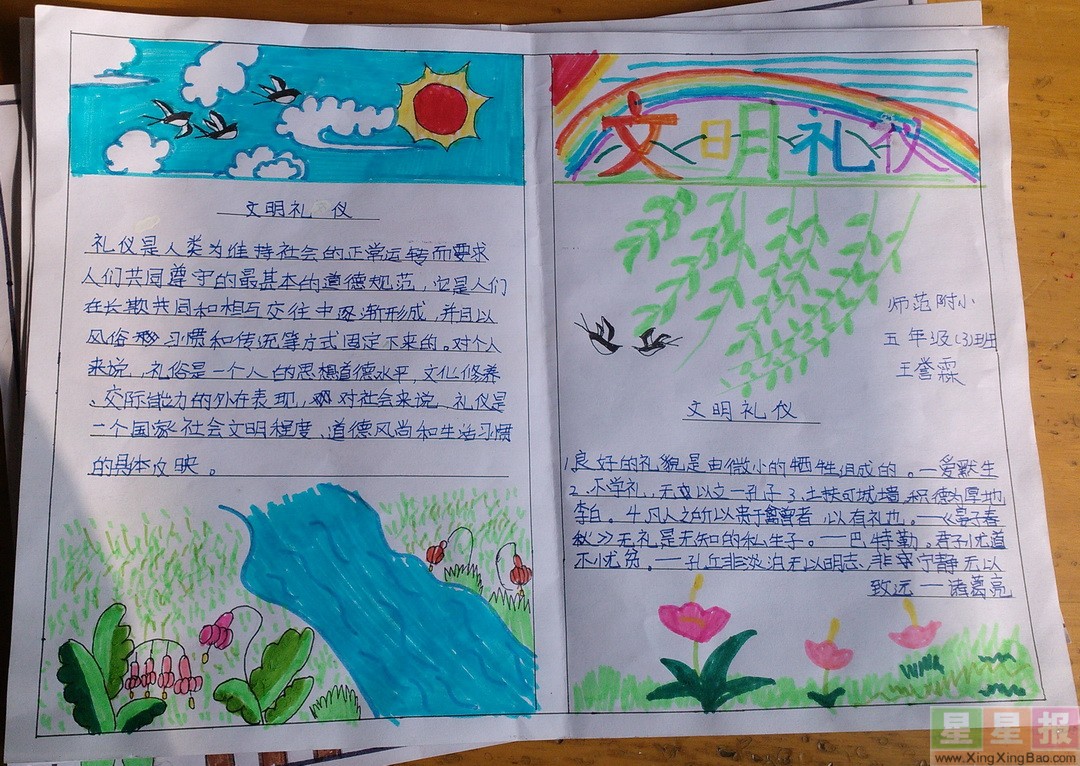 文明礼仪
礼仪是人类为维持社会的正常运转而要求
人们共同尊守的最其本的道德规范,它是人们
在长欺共同和相互交往中逐渐形成,并且以
风俗 习惯和传统等方式固定下来的。对个人
来说,礼俗是一个人的思想道德水平,文化修养
、交际能力的外在表现,对社会来说,礼仪是
一个国家社会文明程度、道德风尚和生活习惯
的具体反映。
文明礼仪
师范附小
五年级(3)班
王誉霖
文明礼仪
1.良好的礼貌是由微小的牺牲组成的。—爱默生
2.不学礼,无以立—孔子 3.土扶可城墙,积德为厚地
李白。4.凡人之所以贵于禽兽者,以有礼也。—《晏子春
秋》无礼是无知的私生子。——巴特勒。君子忧道
不忧贫。——孔丘非淡泊无以明志、非宁静无以
致远——诸葛亮
星星报
www.XingXingBao.com